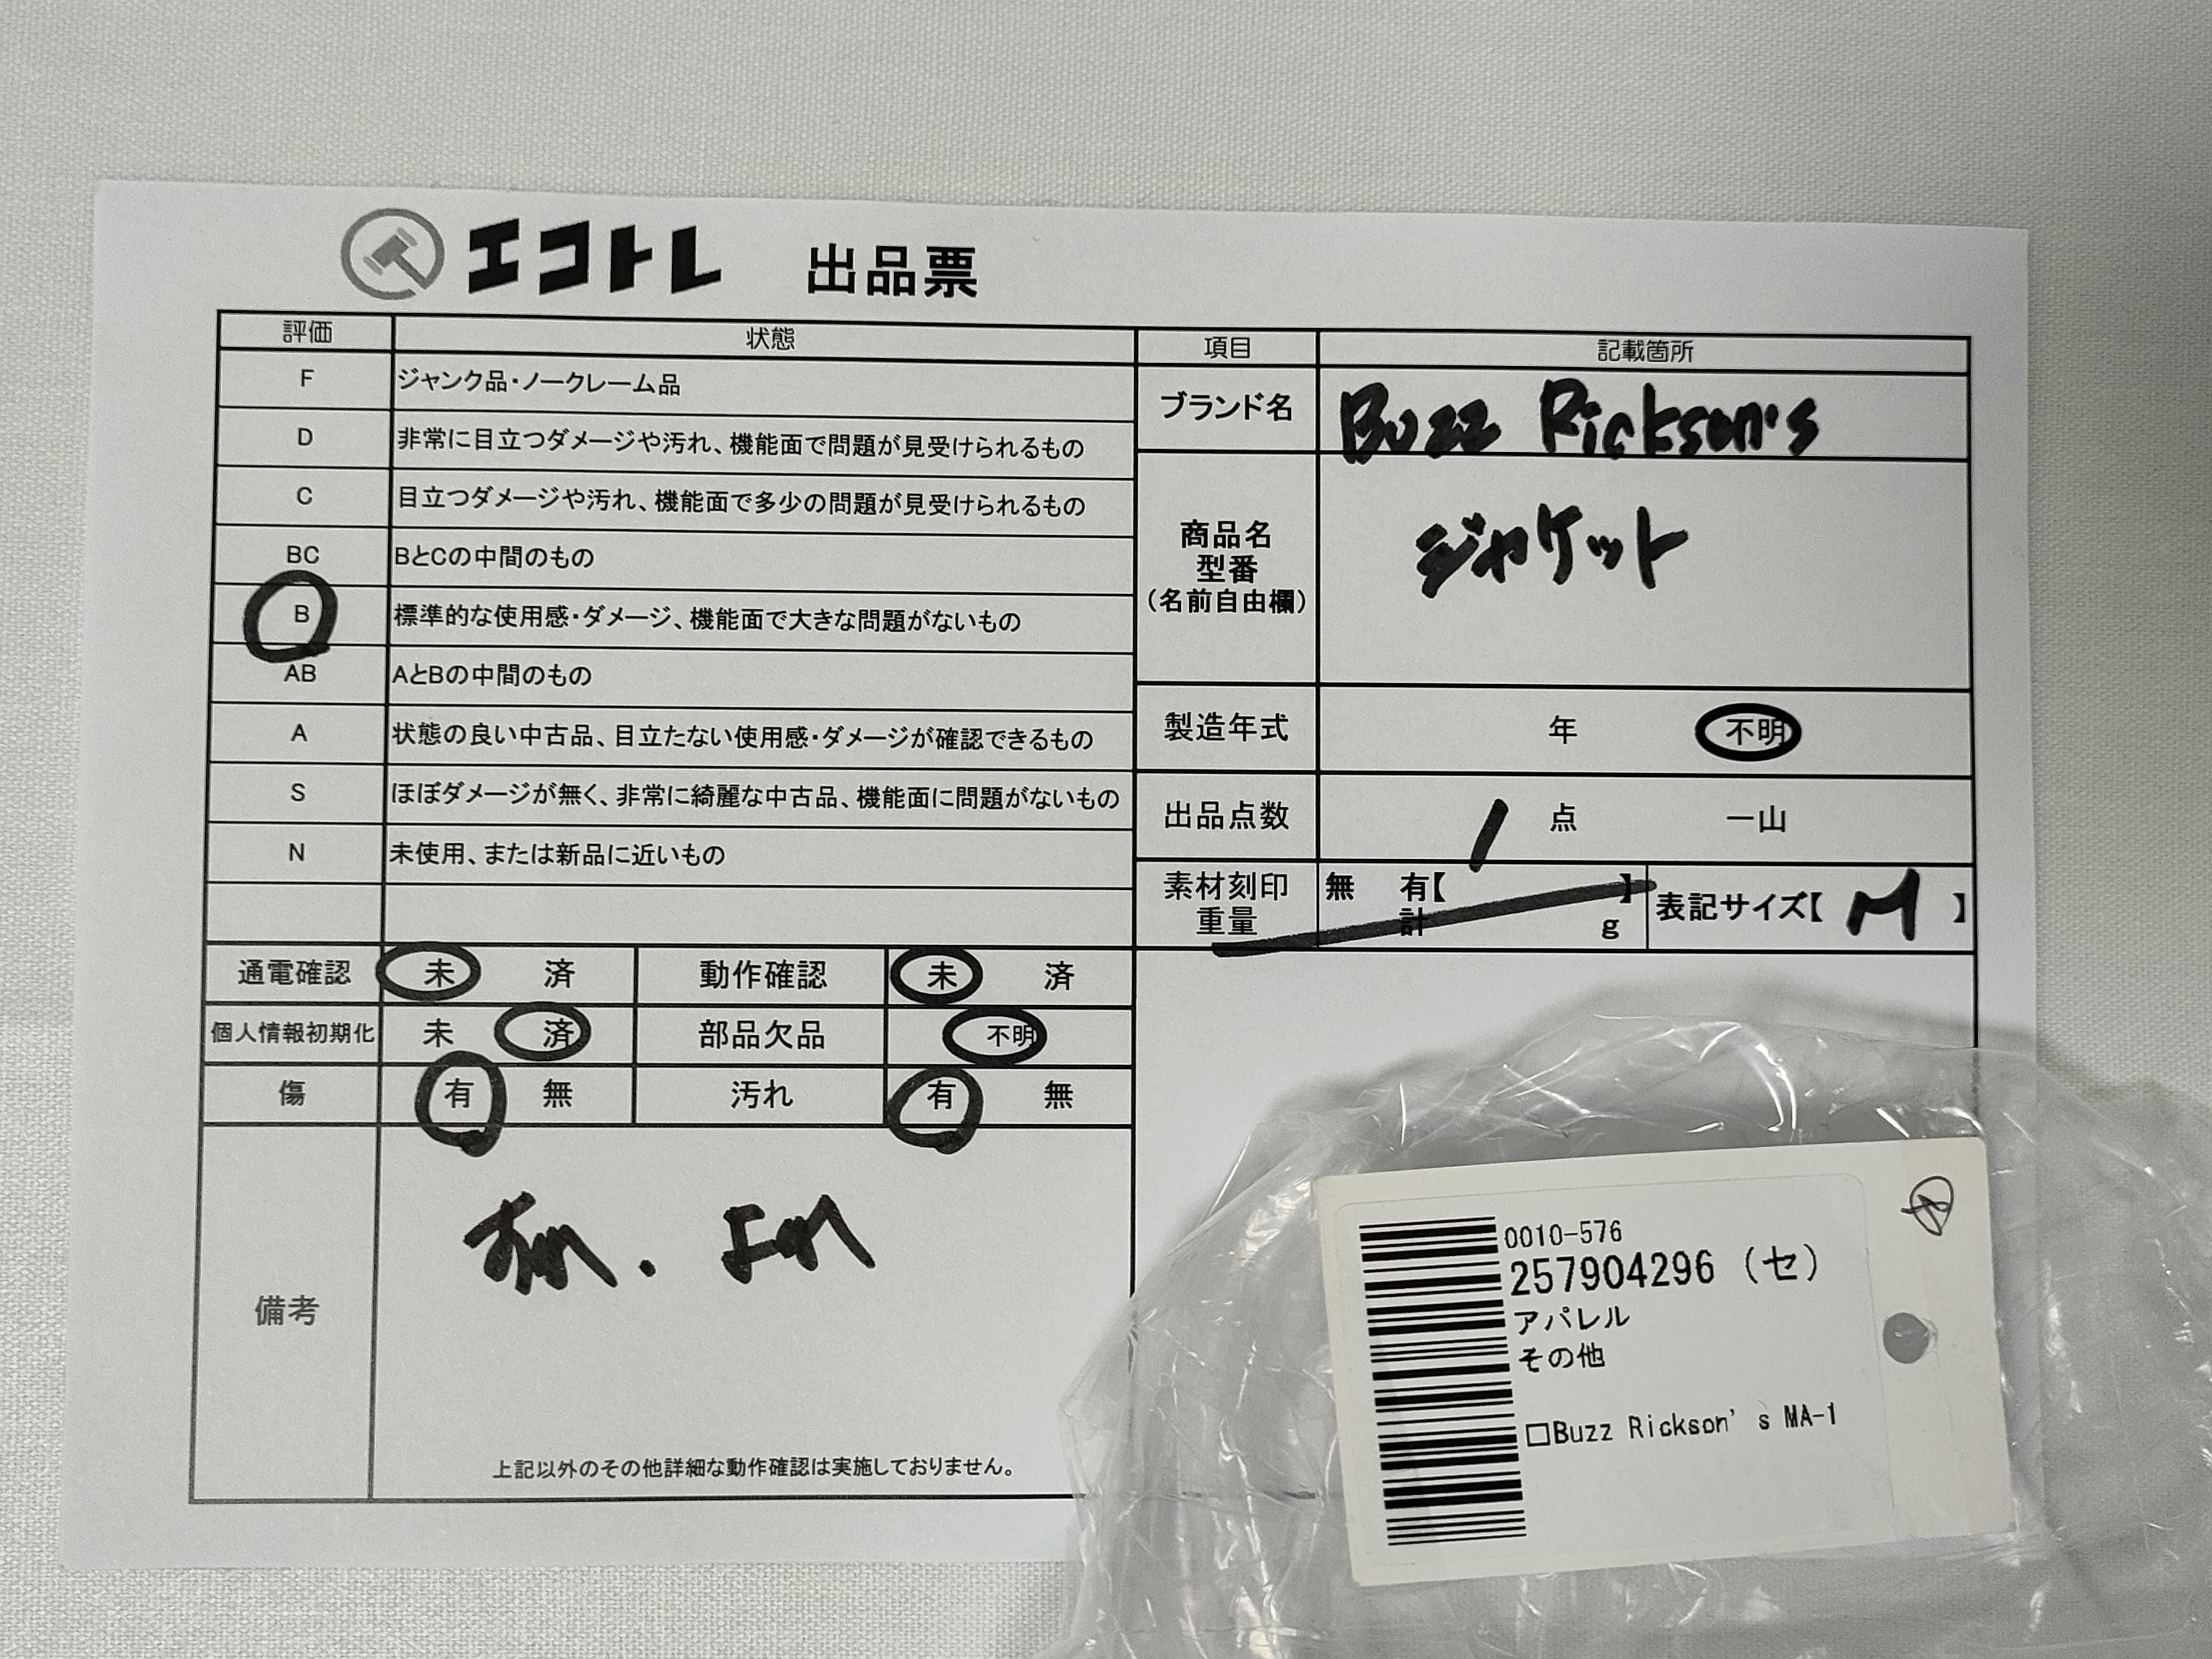 エコトレ 出品票
評価 状態
F ジャンク品・ノークレーム品
D 非常に目立つダメージや汚れ、機能面で問題が見受けられるもの
C 目立つダメージや汚れ、機能面で多少の問題が見受けられるもの
BC BとCの中間のもの
B 標準的な使用感・ダメージ、機能面で大きな問題がないもの
AB AとBの中間のもの
A 状態の良い中古品、目立たない使用感・ダメージが確認できるもの
S ほぼダメージが無く、非常に綺麗な中古品、機能面に問題がないもの
N 未使用、または新品に近いもの
通電確認 未 済 動作確認 未 済
個人情報初期化 未 済 部品欠品 不明
傷 有 無 汚れ 有 無
備考
上記以外のその他詳細な動作確認は実施しておりません。
項目 記載箇所
ブランド名 Buzz Rickson's
商品名
型番
(名前自由欄)
ジャケット
製造年式 年 不明
出品点数 1 点 一山
素材刻印 無 有【 】
重量 計 g
表記サイズ【 M 】
0010-576
257904296 (セ)
アパレル
その他
□Buzz Rickson's MA-1